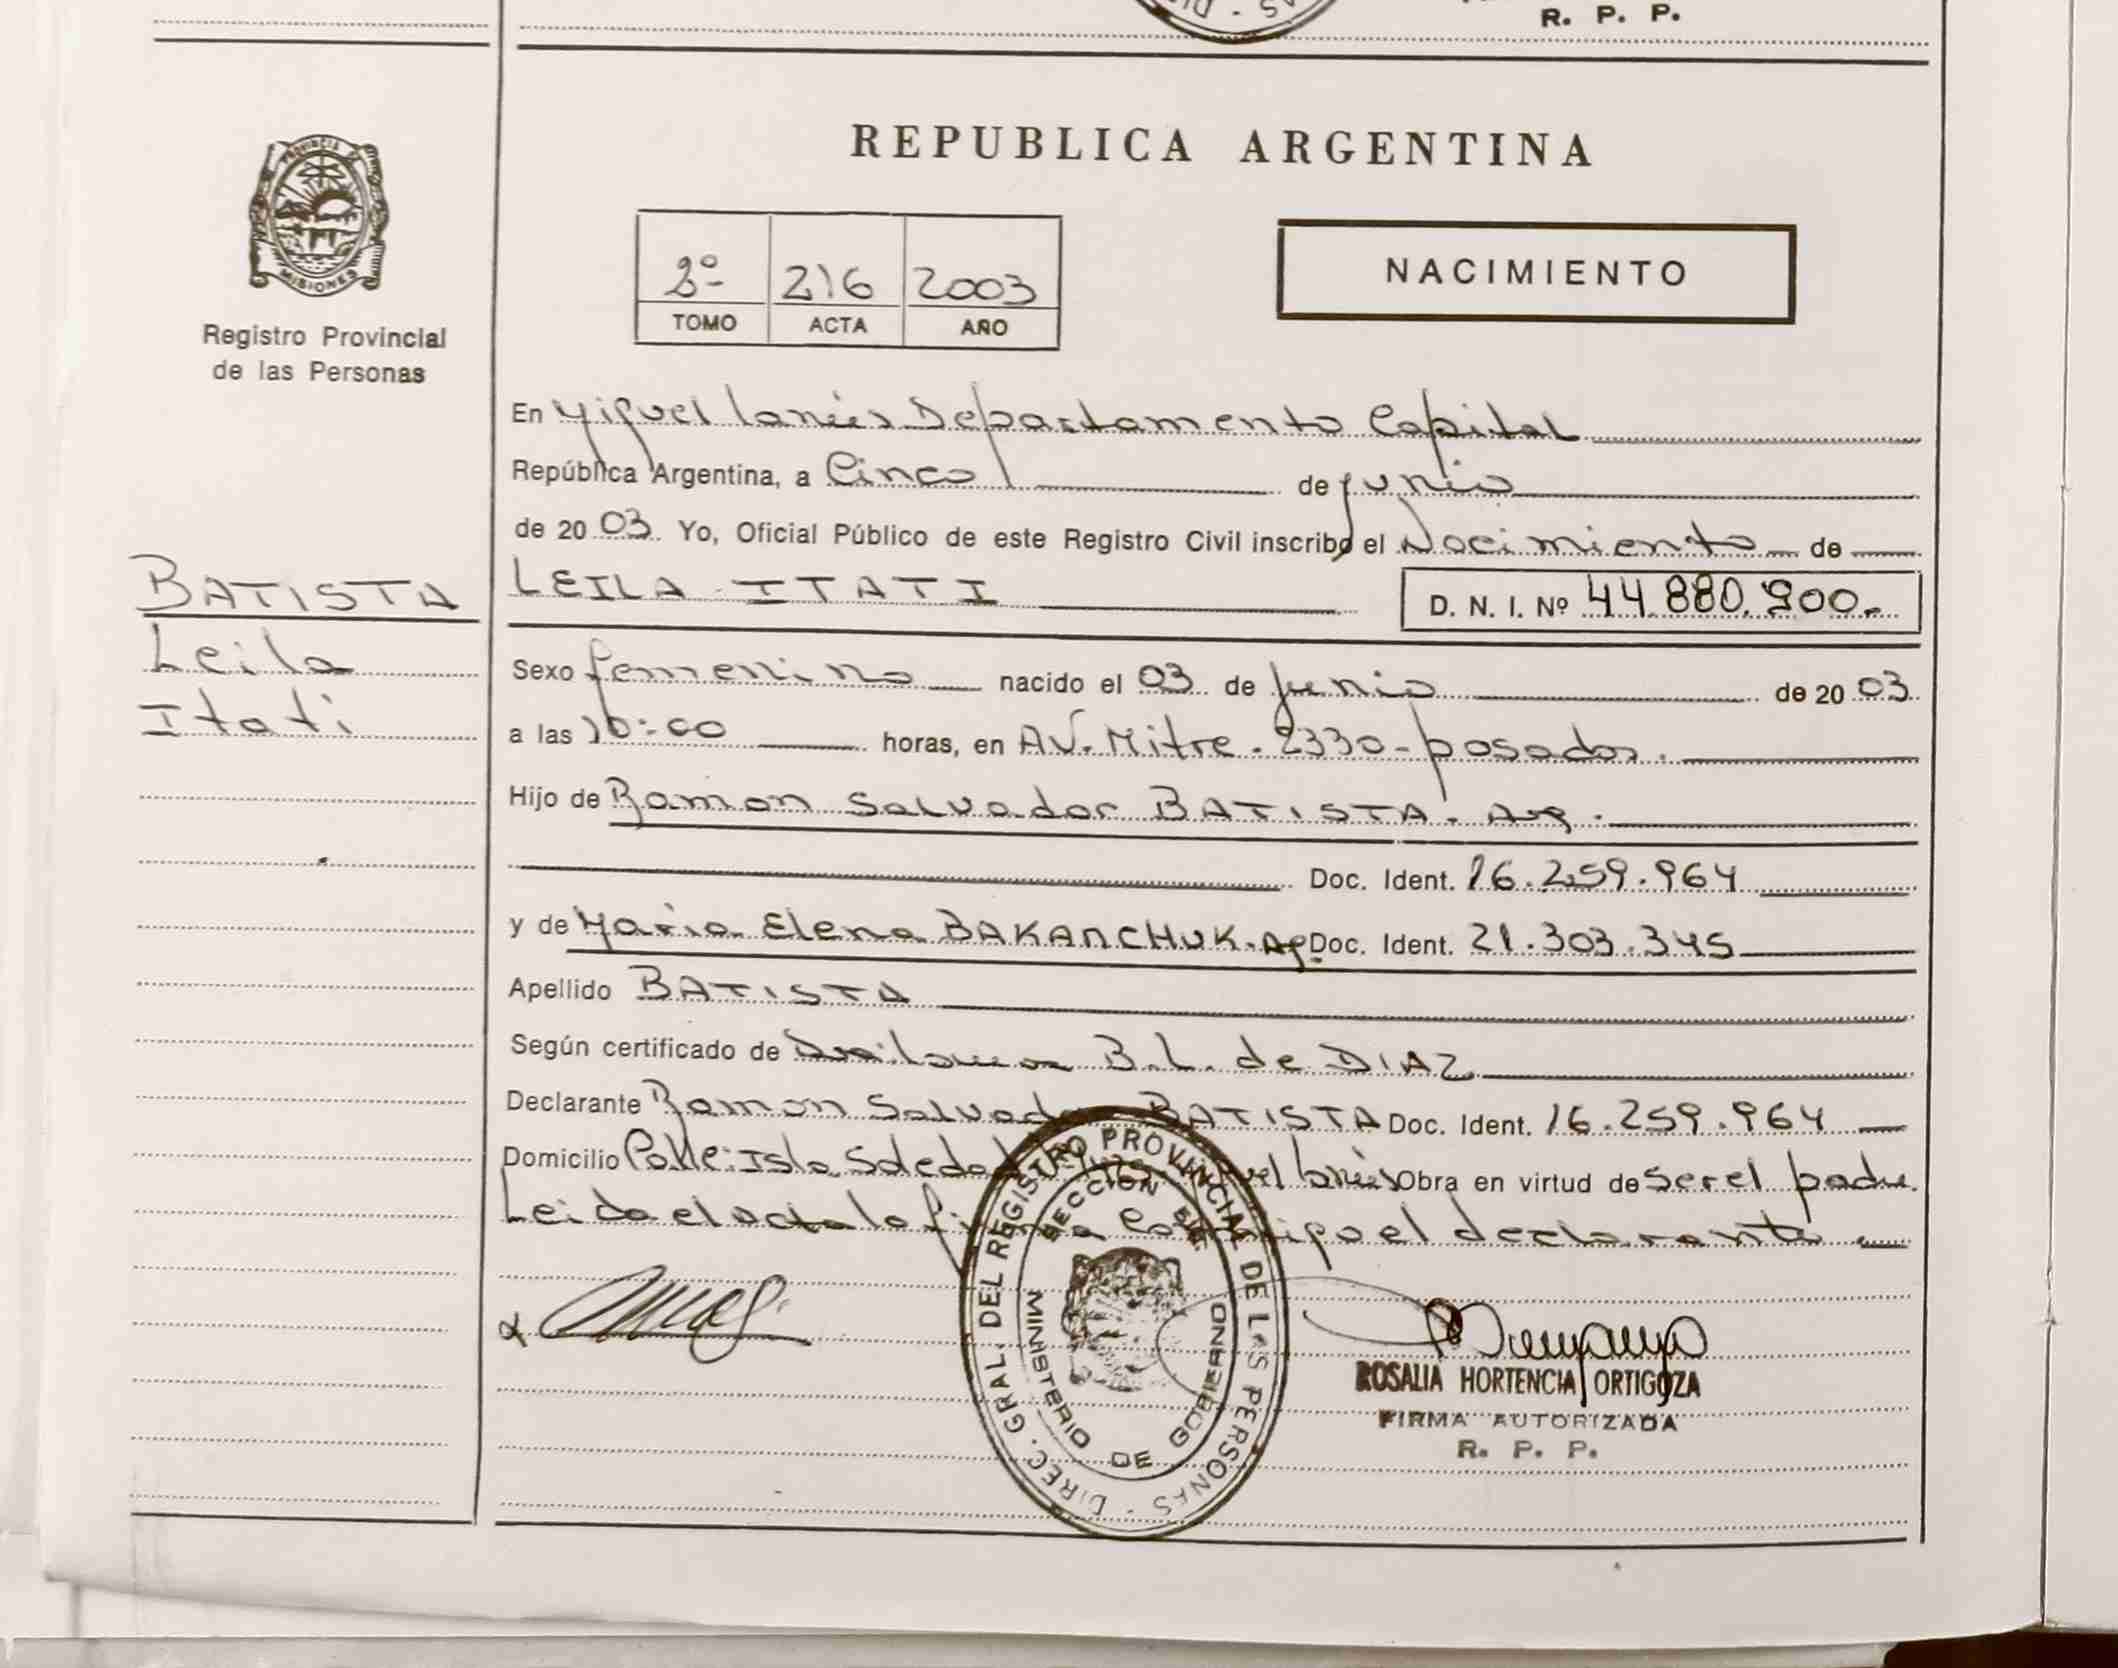 R. P. P.
PROVINCIA DE
MISIONES
Registro Provincial
de las Personas
REPUBLICA ARGENTINA
2º 216 2003
TOMO ACTA AÑO
NACIMIENTO
En Miguel Lanús Departamento Capital
República Argentina, a Cinco de junio
de 2003. Yo, Oficial Público de este Registro Civil inscribo el Nacimiento de
BATISTA LEILA ITATI D. N. I. Nº 44.880.900.-
Leila
Itati
Sexo femenino nacido el 03 de junio de 2003
a las 10:00 horas, en AV. Mitre. 2330-posadas.
Hijo de Ramon Salvador BATISTA. Arg.
Doc. Ident. 16.259.964
y de Maria Elena BAKANCHUK. Ag Doc. Ident. 21.303.345
Apellido BATISTA
Según certificado de B.L. de DIAZ
Declarante Ramon Salvador BATISTA Doc. Ident. 16.259.964
Domicilio Calle: Isla Soledad Lanús Obra en virtud de ser el padre.
Leida el acta la firma Conmigo el declarante
DIREC. GRAL. DEL REGISTRO PROVINCIAL DE LAS PERSONAS
MINISTERIO DE GOBIERNO
ROSALIA HORTENCIA ORTIGOZA
FIRMA AUTORIZADA
R. P. P.